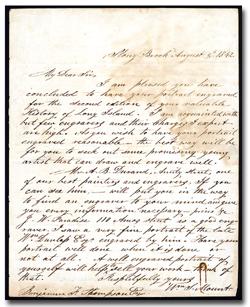 Stony Brook August 2, 1842
My Dear Sir,
I am pleased you have
concluded to have your portrait engraved
for the second edition of your valuable
History of Long Island. I am acquainted with
but few engravers and their charges I expect
are high. As you wish to have your portrait
engraved reasonable – the best way will be
for you to seek out some promising young
artist that can draw and engrave well.
Mr. A. B. Durand, Amity Street, one
of our best painters and engravers. If you
can see him, will put you in the way
to find an engraver to your mind and give
you every information necessary – price &c
engraver. I saw a very fine portrait of the late
Wm. Dunlap Esq engraved by him. Have your
portrait well done when it is done or
not at all. A well engraved portrait of
yourself will help sell your work. Think of
that. Respectfully yours
Benjamin F. Thompson Esq. Wm. S. Mount.